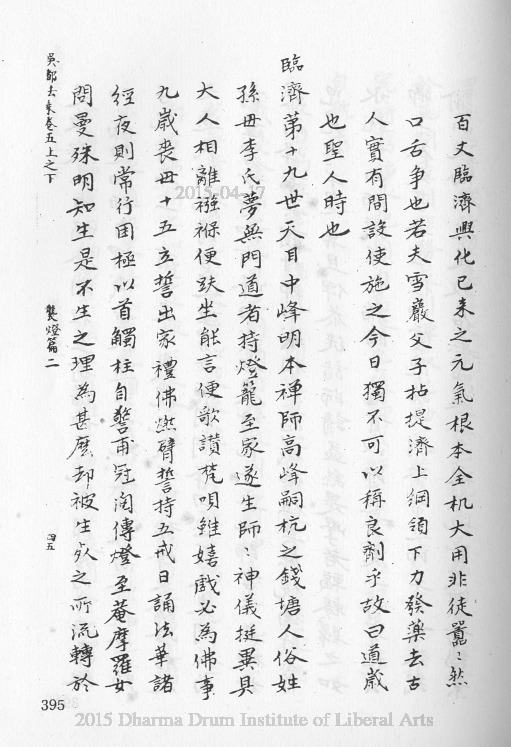 百丈臨濟興化已来之元氣根本全机大用非徒囂〻然
口舌争也若夫雪巖父子拈提濟上綱領下力發藥去古
人實有間設使施之今日獨不可以稱良劑乎故曰道歲
也聖人時也
臨濟第十九世天目中峰明本禅師高峰嗣杭之錢塘人俗姓
孫母李氏夢無門道者持燈籠至家遂生師〻神儀挺異具
大人相離襁褓便趺坐能言便歌讃梵唄雖嬉戲必為佛事
九歲丧母十五立誓出家禮佛燃臂誓持五戒日誦法華諸
經夜則常行困極以首觸柱自警甫冠閱傳燈至菴摩羅女
問曼殊明知生是不生之理為甚麽却被生死之所流轉於
吳都法乘卷五上之下
焚燈篇二
四五
395
2015-04-17
2015 Dharma Drum Institute of Liberal Arts